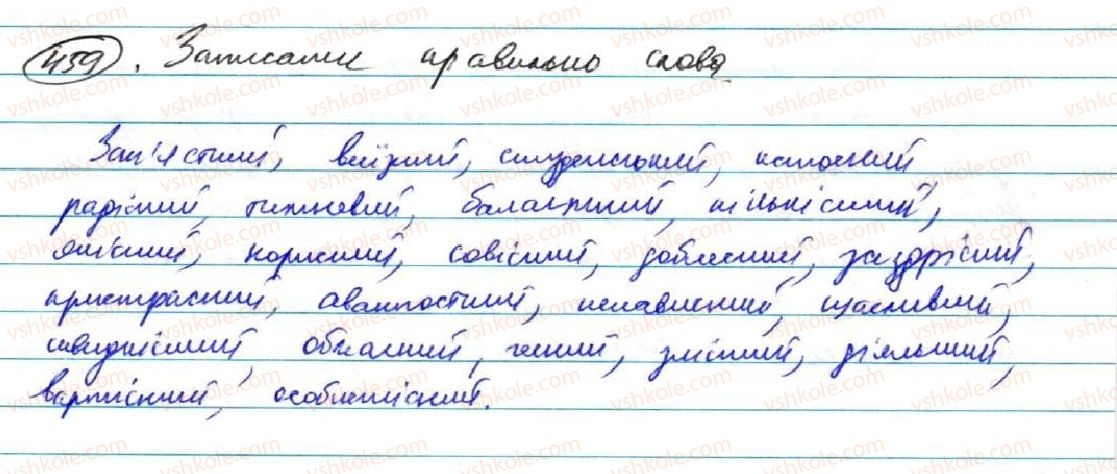 459. Записали правильно слова
Зап'ястний, виїзний, студентський, кістлявий
радісний, тижневий, баластний, кількісний,
якісний, корисний, совісний, доблесний, заздрісний,
пристрасний, аванпостний, ненависний, щасливий,
швидкісний, обласний, чесний, злісний, діяльний,
вартісний, особистісний.